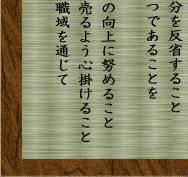 分を反省すること
つであることを
の向上に努めること
売るよう心掛けること
職域を通じて